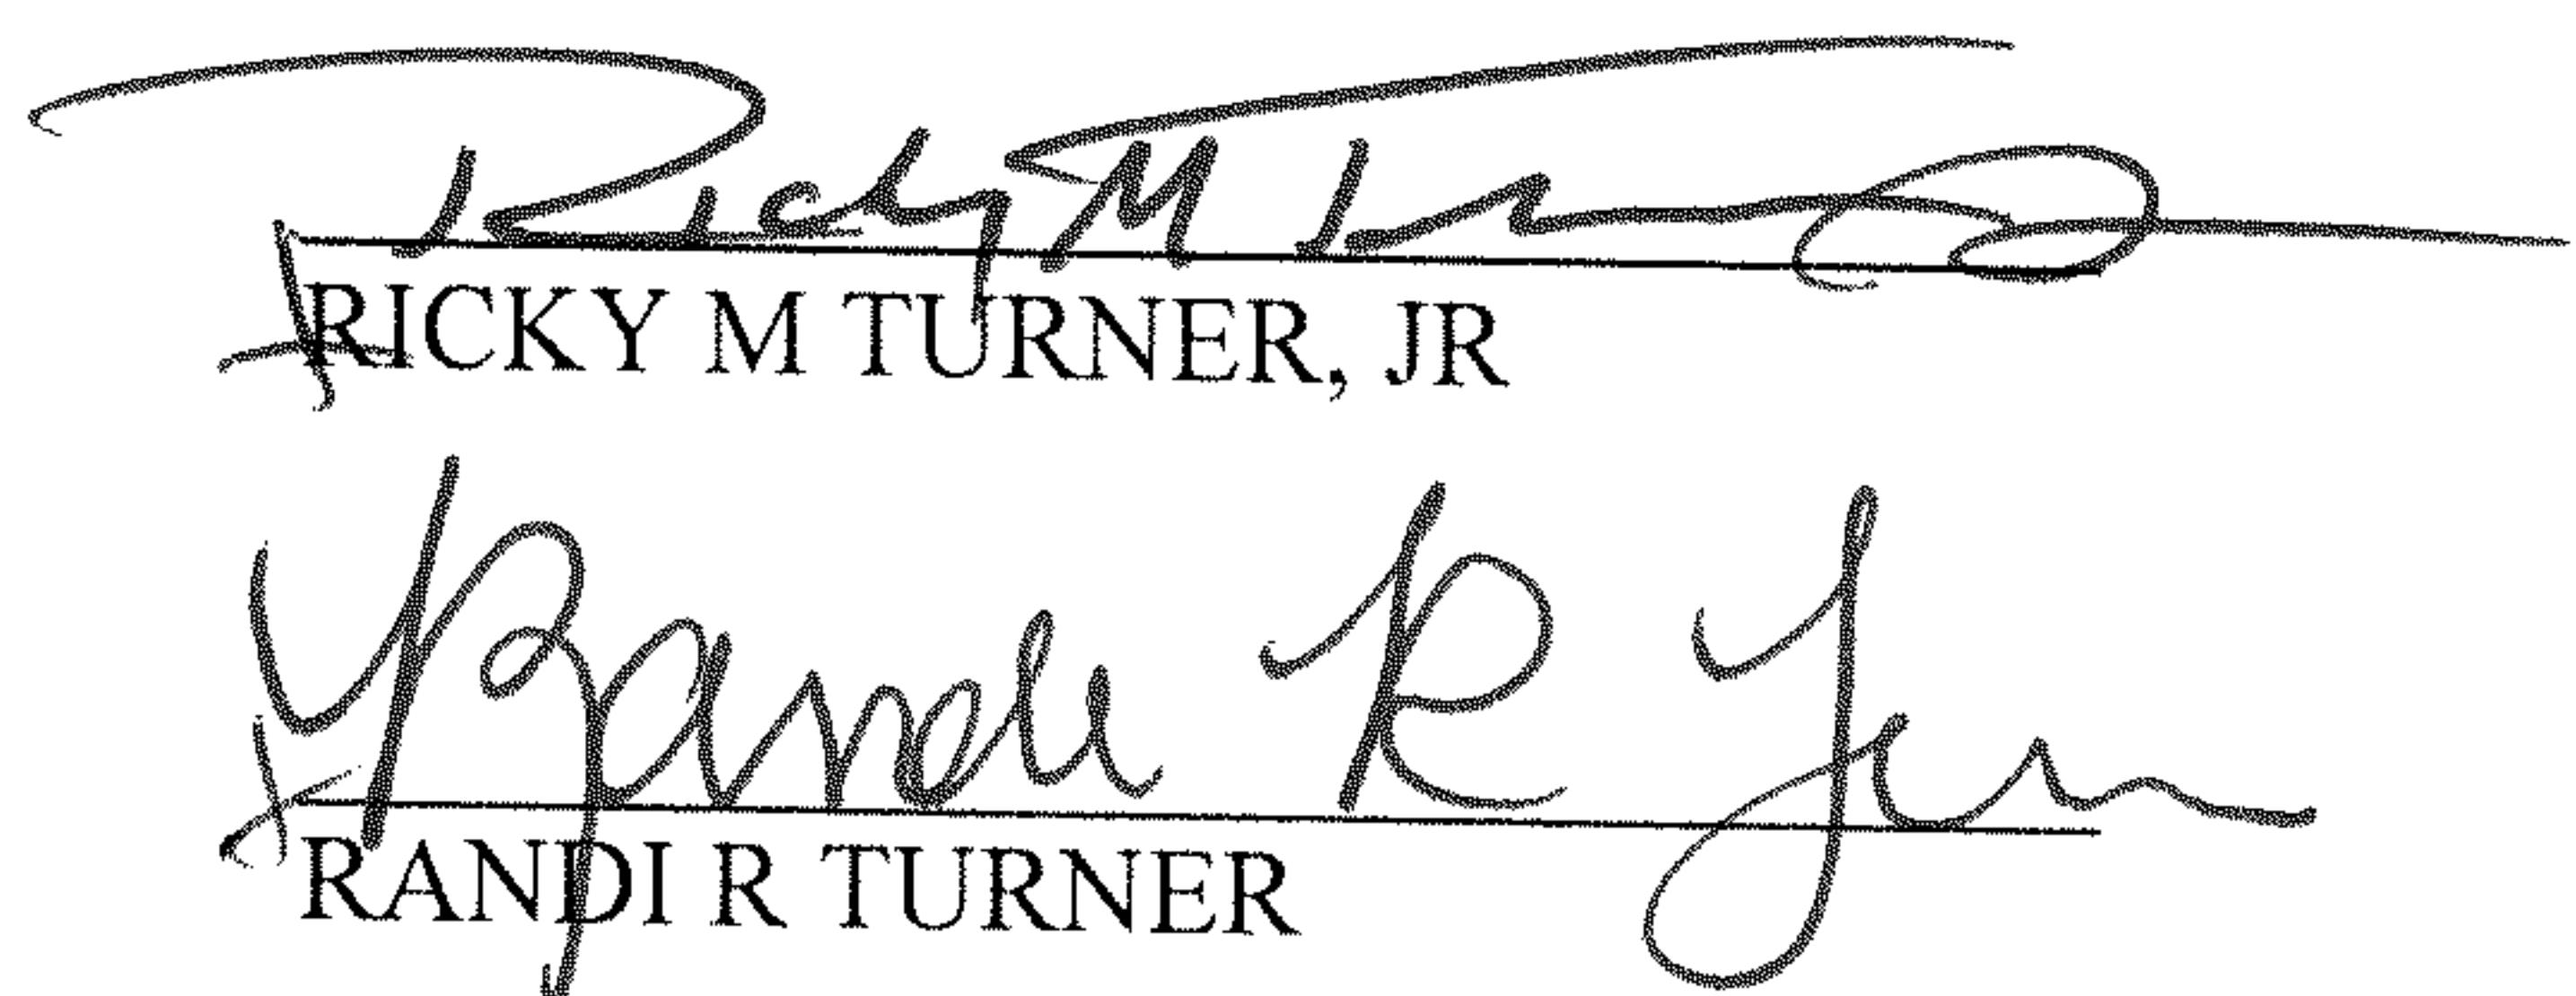 Ricky M Turner
RICKY M TURNER, JR
Randi R Turner
RANDI R TURNER